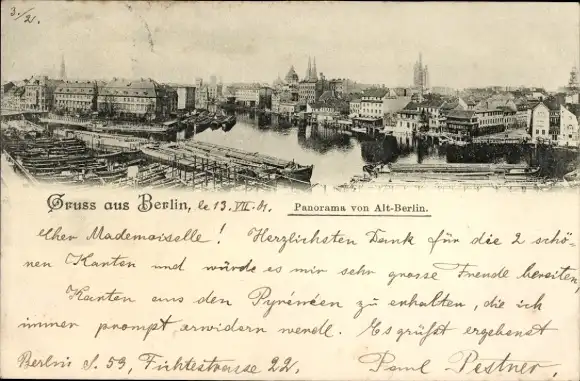 3./2.
Gruss aus Berlin, le 13. VII. 01.
Panorama von Alt-Berlin.
Cher Mademoiselle! Herzlichsten Dank für die 2 schö-
nen Karten und würde es mir sehr grosse Freude bereiten,
Karten aus den Pyrenéen zu erhalten, die ich
immer prompt erwidern werde. Es grüßt ergebenst
Berlin S. 59, Fichtestrasse 22. Paul Pestner.